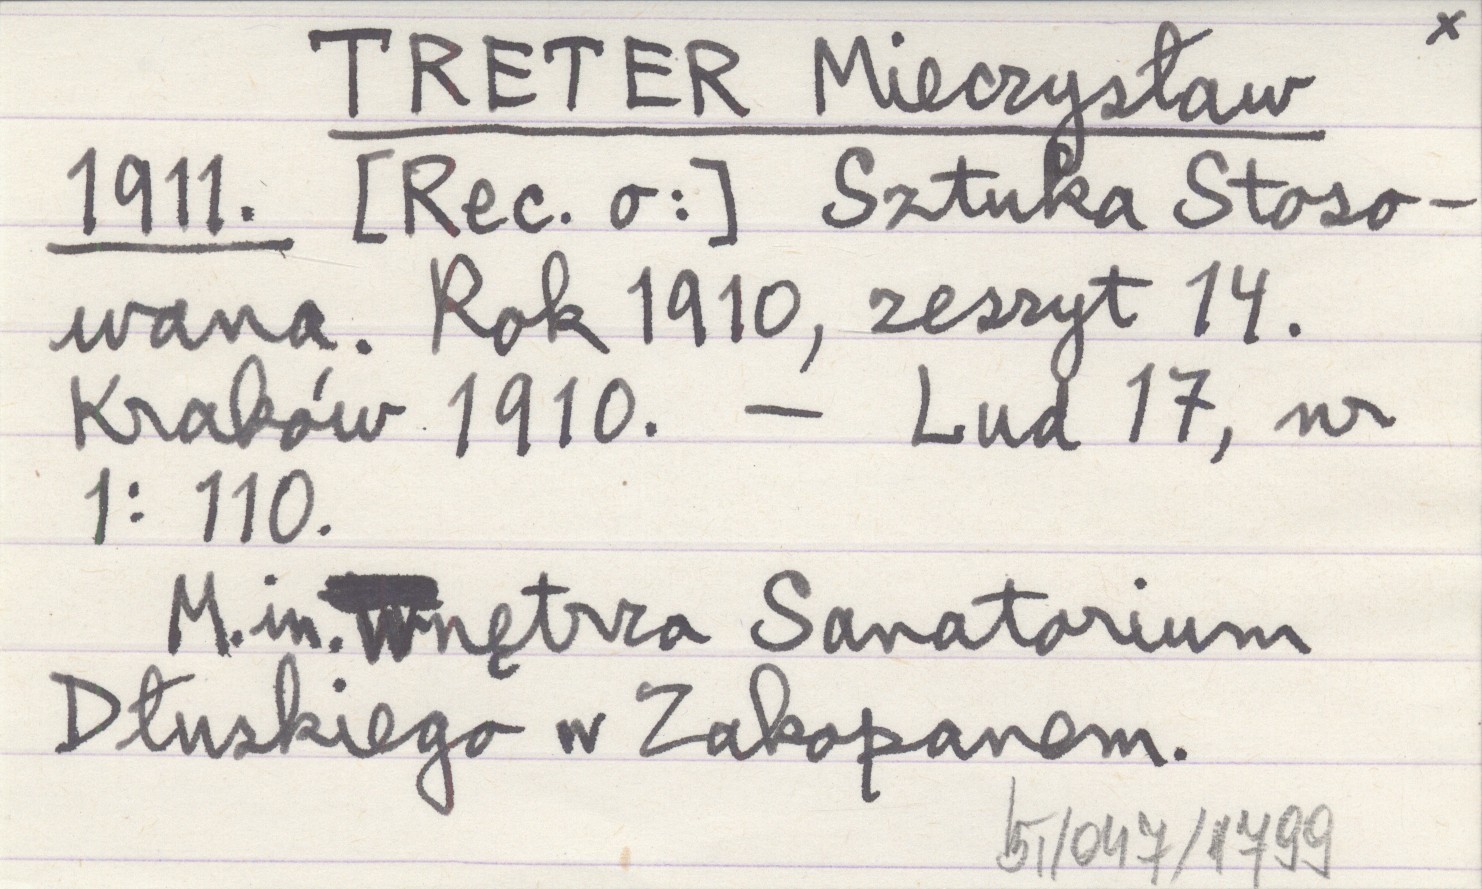 x
TRETER Mieczysław
1911. [Rec. o:] Sztuka Stoso-
wana. Rok 1910, zeszyt 14.
Kraków 1910. — Lud 17, nr
1: 110.
M.in. Wnętrza Sanatorium
Dłuskiego w Zakopanem.
/047/1799